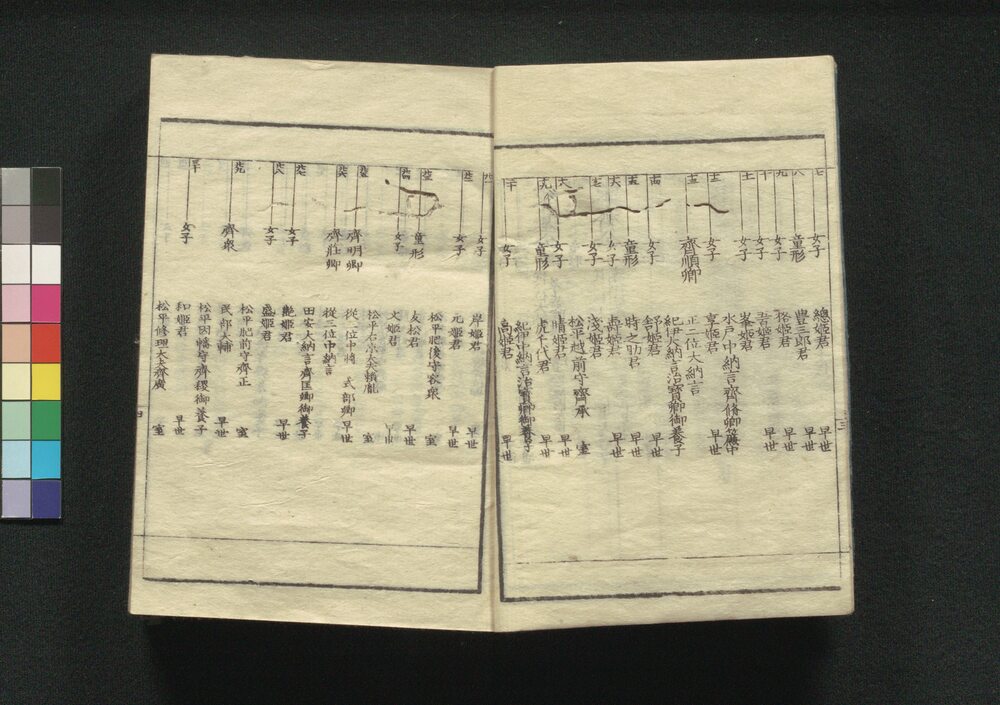 七 女子 總姫君 早世
八 童形 豊三郎君 早世
九 女子 格姫君 早世
十 女子 姫君 早世
十一 女子 峯姫君
水戸中納言齊脩卿簾中
十二 女子 亨姫君 早世
十三 齊順卿 正二位大納言
紀伊大納言治寳卿御養子
十四 女子 舒姫君 早世
十五 童形 時之助君 早世
十六 女子 壽姫君 早世
十七 女子 浅姫君
松平越前守齊承 室
十八 女子 晴姫君 早世
十九 童形 虎千代君 早世
紀伊中納言治寳卿御養子
二十 女子 高姫君 早世
十三
女子 岸姫君 早世
廿二 女子 元姫君 早世
松平肥後守容衆 室
廿三 童形 友松君 早世
廿四 女子 文姫君
松平右京大夫頼胤 室
廿五 齊明卿 從二位中将 式部卿 早世
廿六 齊莊卿 從二位中納言
田安大納言齊匡卿御養子
廿七 女子 艶姫君 早世
廿八 女子 盛姫君
松平肥前守齊正 室
廿九 齊衆 民部大輔 早世
松平因幡守齊稷御養子
三十 女子 和姫君 早世
松平修理大夫齊廣 室